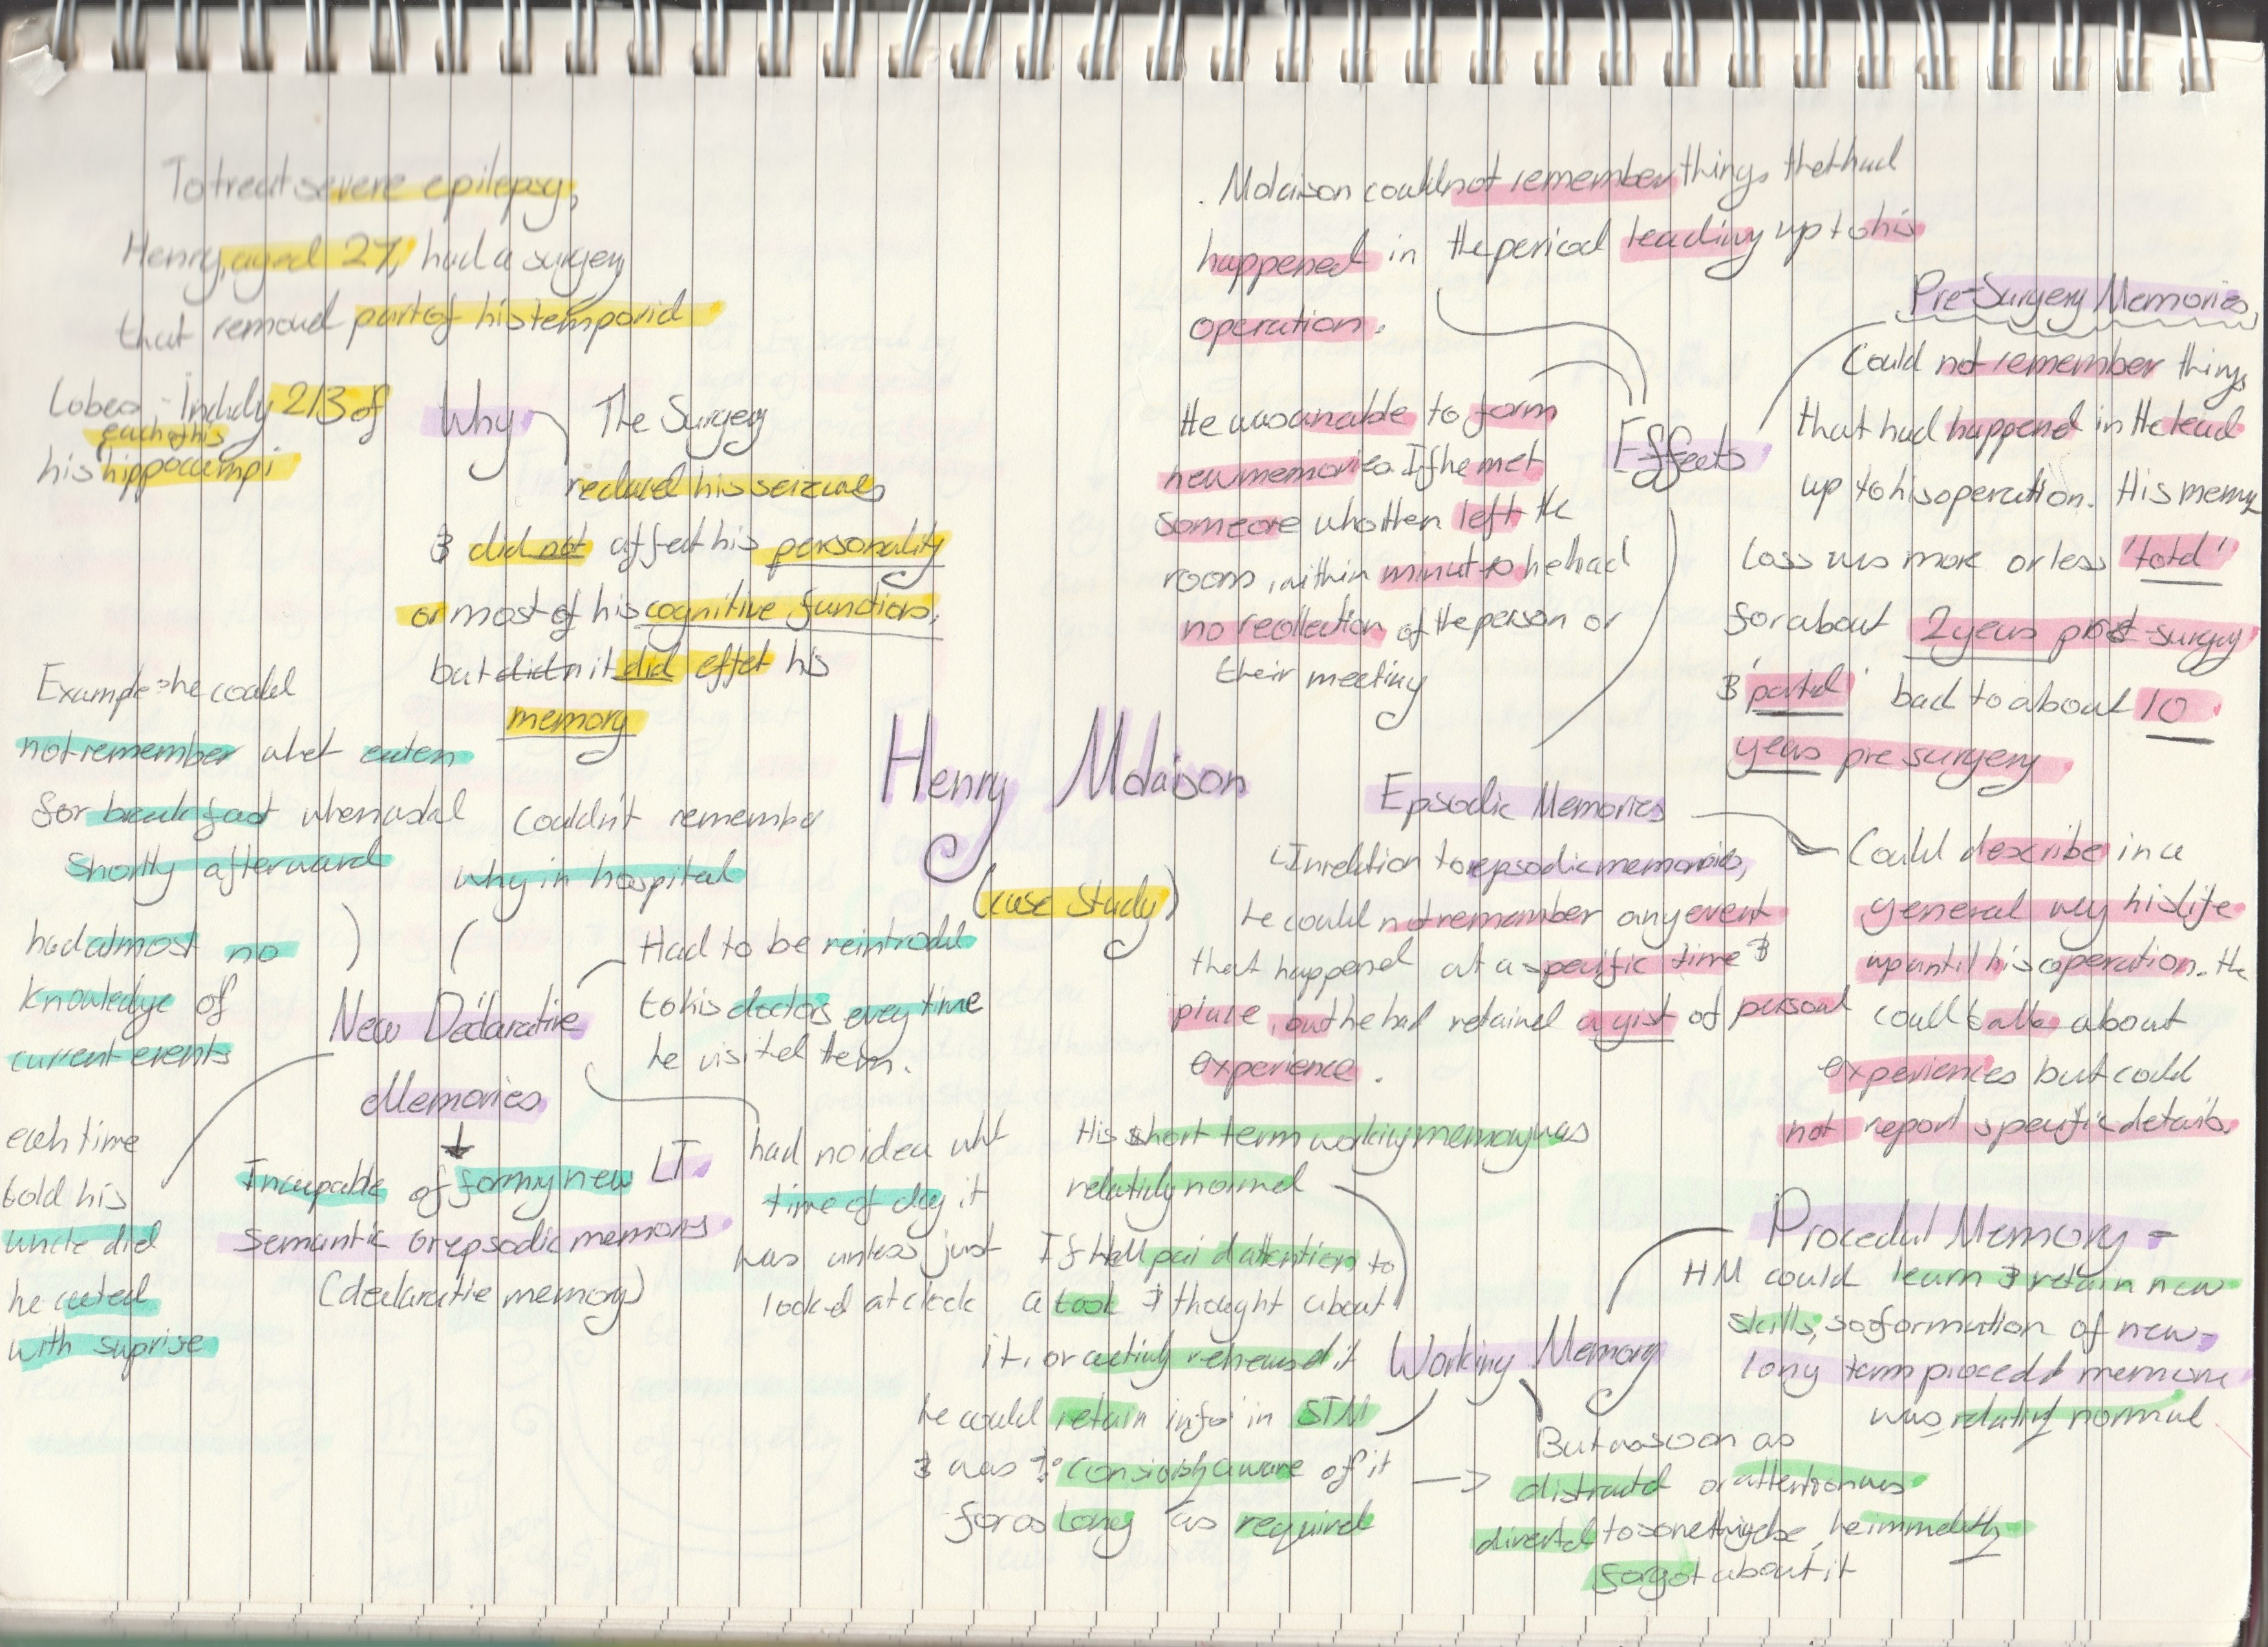 To treat severe epilepsy,
Henry, aged 27, had a surgery
that removed part of his temporal
Lobes, - Includy 2/3 of
each of his
his hippocampi
Why
The Surgery
reduced his seizures
& did not affect his personality
or most of his cognitive functions,
but didn it did effet his
memory
Henry Molaison
(case study)
Example: he could
not remember what eaten
for breakfast when askd
shortly afterward
Couldn't remember
why in hospital
had almost no
knowledge of
current events
Had to be reintrodul
to his doctors every time
he visited them.
New Declarative
Memories
Incapable of formy new LT
semantic or epsodic memories
(declarative memory)
each time
told his
uncle did
he acted
with suprise
had no idea wht
time of day it
was unless just
looked at clock
. Molaison could not remember things thet had
happened in the period leading up to his
operation.
He was unable to form
new memories. If he met
someone who then left the
room, within minutes he had
no recollection of the person or
their meeting
Effects
Pre-Surgery Memories,
Could not remember things
that had happend in the lead
up to his operation. His memry
Loss was more or less 'total'
for about 2 years prost-surgey
& 'partial' back to about 10
years pre surgery
Epsodic Memories
In relation to repsodic memories,
he could not remember any event
that happened at a specific time &
place, but he had retained a gist of personal
experience.
Could describe in a
general way his life
up until his operation. He
could talk about
experiences but could
not report specific details.
His short term working memory was
relativly normal
If HM paid attention to
a task & thought about
it, or activly rehearsed it
he could retain info in STM
& was consiously aware of it
for as long as required
Working Memory
But as soon as
distracted or attention was
diverted to something else, he immedietly
forgot about it
Procedul Memory -
HM could learn & retain new
skills, so formation of new
long term procedl memories
was relativly normal